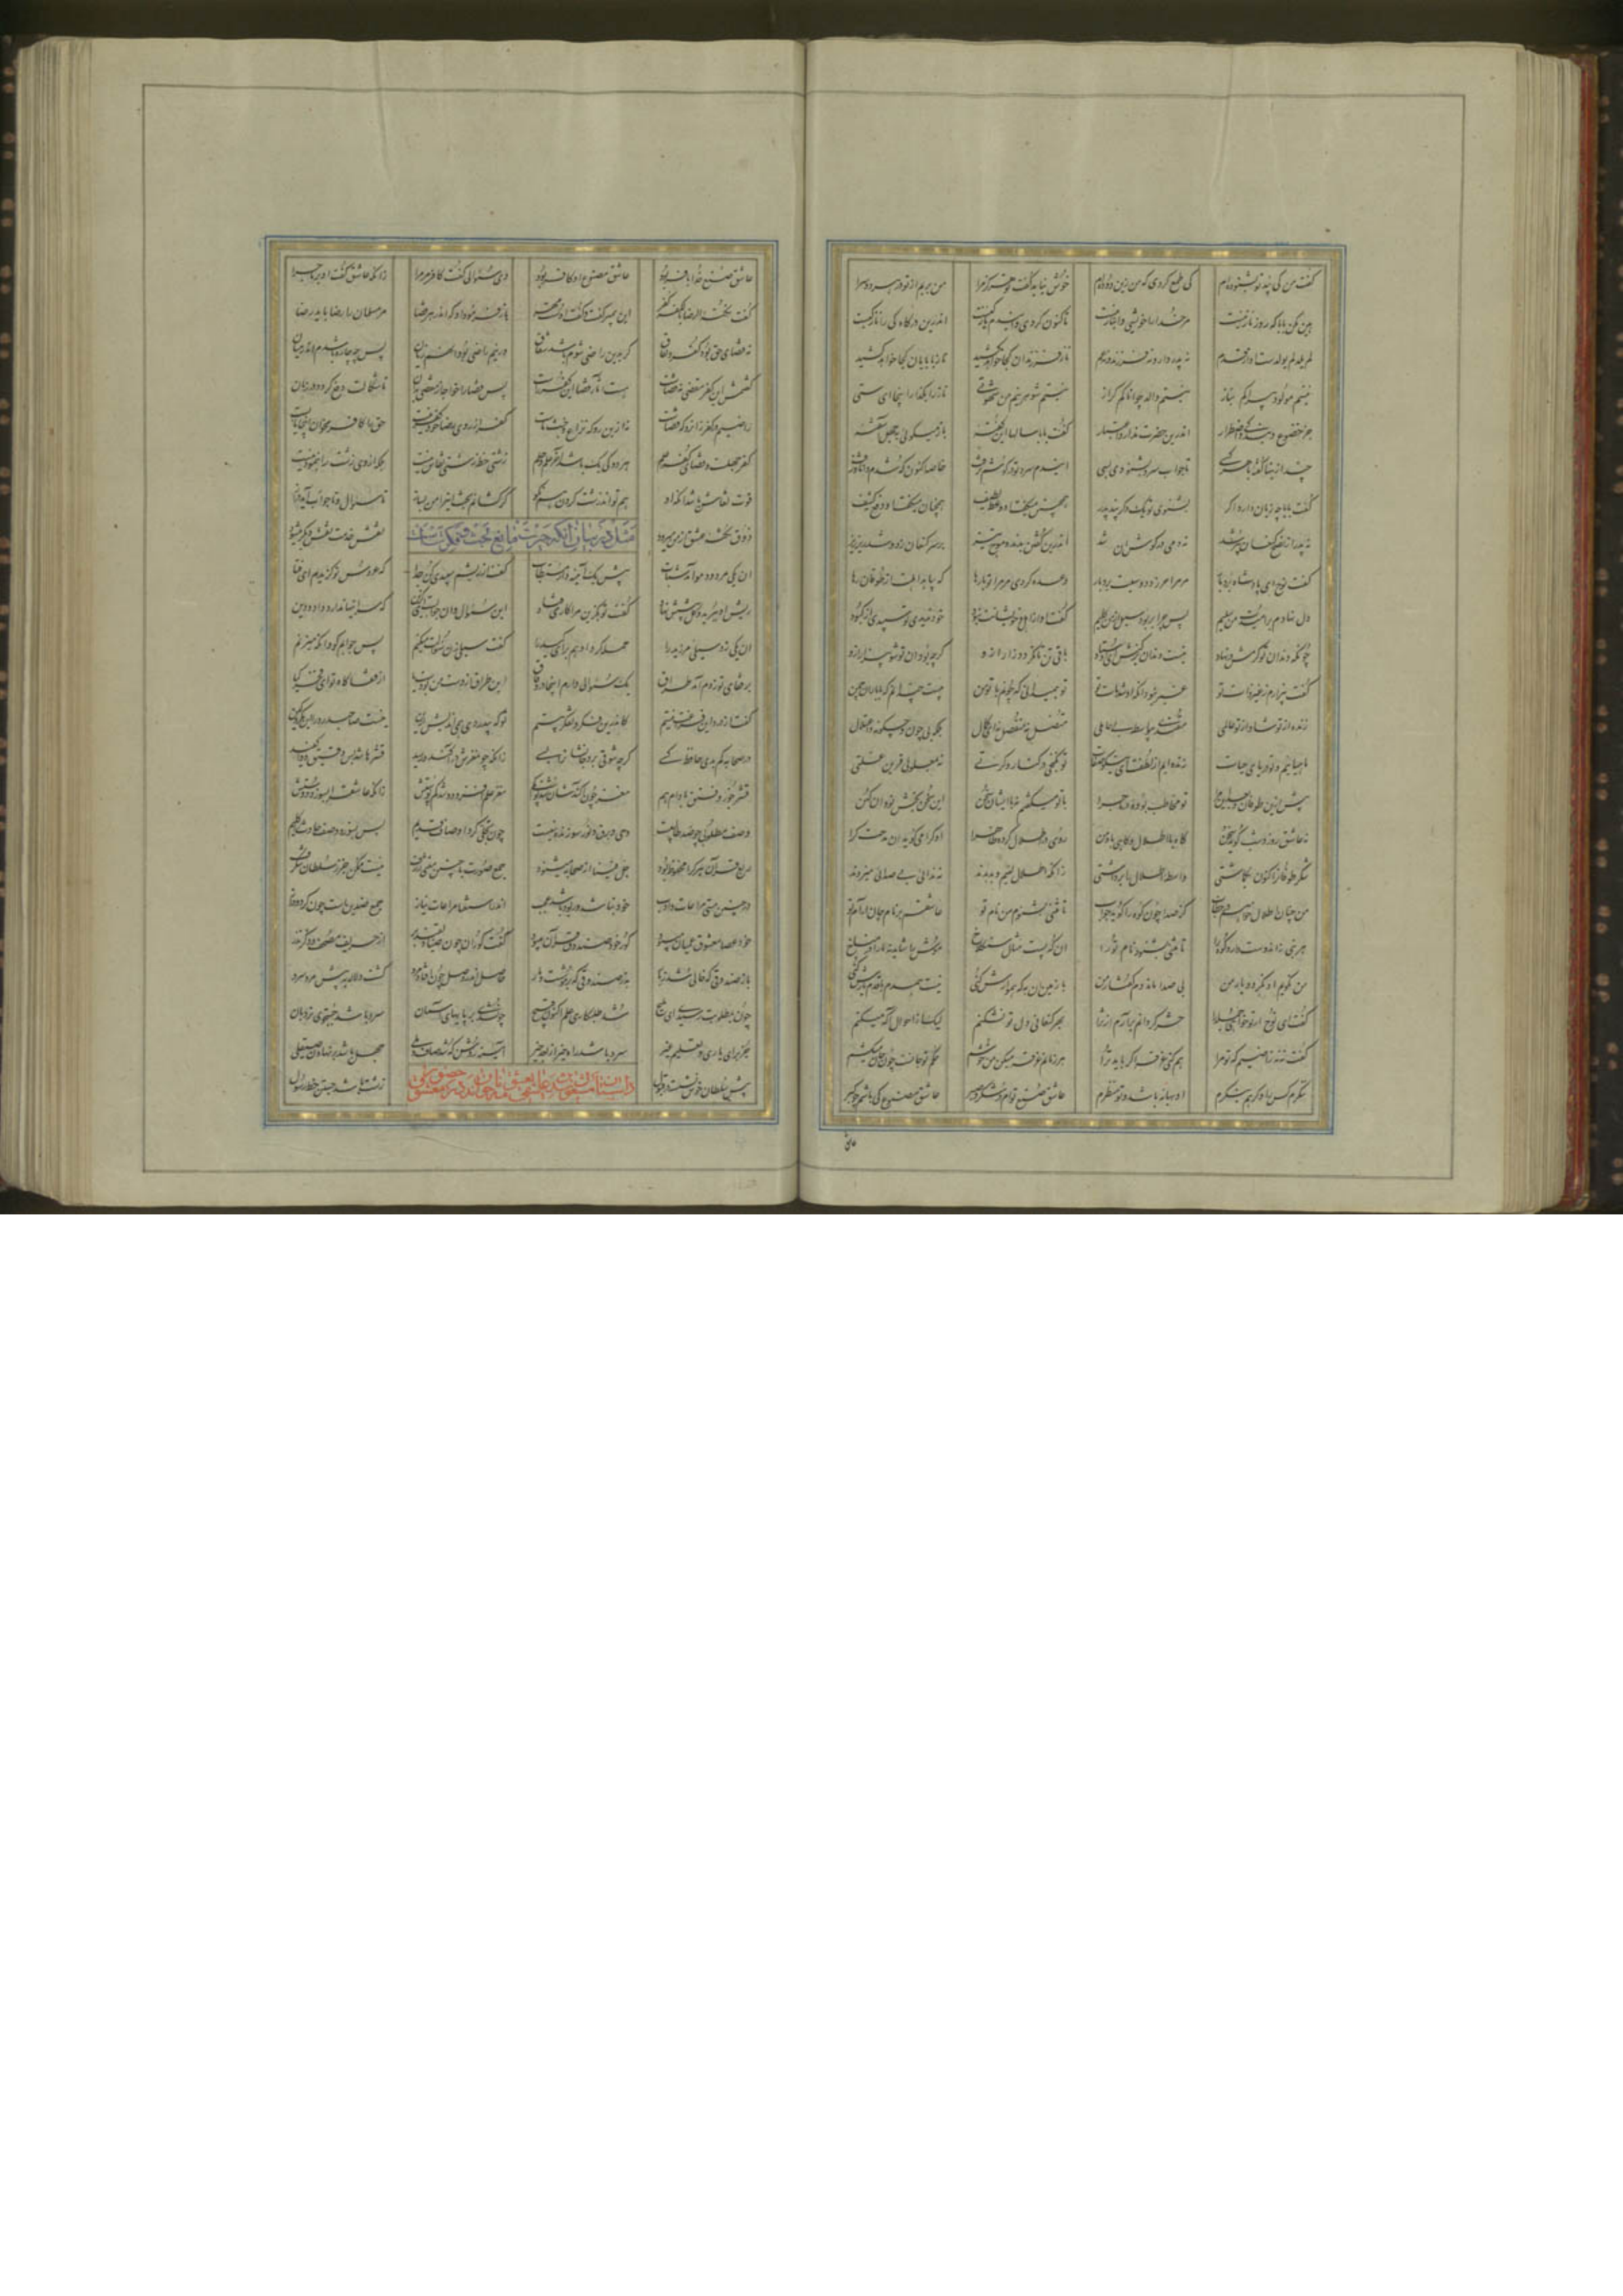 گفت من کی پند تو بشنوده‌ام کی طمع کردی که من زین دوده‌ام خوش نیاید گفت تو هرگز مرا من بریم از تو در هر دو سرا
هین مکن بابا که روز ناز نیست مر خدا را خویشی و انباز نیست تاکنون کردی و این دم نازکیست اندرین درگاه کی را ناز کیست
لم یلد لم یولدست او از قدم نه پدر دارد نه فرزند و نه عم ناز فرزندان کجا خواهد کشید ناز بابایان کجا خواهد کشید
نیستم مولود پیرا کم بناز نیستم والد جوانا کم گراز نیستم شوهر نیم من شهوتی ناز را بگذار اینجا ای ستی
جز خضوع و بندگی و اضطرار اندرین حضرت ندارد اعتبار گفت بابا سالها این گفته باز میگوئی بجهل آشفته
چند ازینها گفته با هر کسی تا جواب سرد بشنودی بسی این دم سرد تو در گوشم نرفت خاصه اکنون که شدم دانا و زفت
گفت بابا چه زیان دارد اگر بشنوی تو یک دگر پند پدر همچنین میگفت او وعظ لطیف همچنان میگفت او دفع کنیف
نه پدر از نصح کنعان سیر شد نه دمی در گوش آن شد اندرین گفتن بدند و موج تیز بر سر کنعان زد و شد ریز ریز
گفت نوح ای پادشاه بردبار مر مرا خر مرد و سیلت برد بار وعده کردی مر مرا تو بارها که بیابد اهلت از طوفان رها
دل نهادم بر امیدت من سلیم پس چرا بربود سیل از من گلیم گفت او از اهل و خویشانت نبود خود ندیدی تو سپیدی از کبود
چونکه دندان تو کرمش در فتاد نیست دندان برکنش ای اوستاد باقی تن تا نگردد زار ازو گرچه بود آن تو شو بیزار ازو
گفت بیزارم ز غیر ذات تو غیر نبود آنکه او شد مات تو تو همیدانی که چونم با تو من بیست چندانم که با باران چمن
زنده از تو شاد از تو عائلی مغتذی بیواسطه بی حائلی متصل نه منفصل نه ای کمال بلکه بی چون و چگونه و اعتلال
ماهیانیم و تو دریای حیات زنده‌ایم از لطفت ای نیکو صفات تو نگنجی در کنار فکرتی نه بمعلولی قرین علتی
پیش ازین طوفان و بعد این مرا تو مخاطب بوده در ماجرا با تو میگفتم نه با ایشان سخن ای سخن بخش نو و آن کهن
نه که عاشق روز و شب گوید سخن گاه با اطلال و گاهی با دمن روی در اطلال کرده ظاهرا او کرا می‌گوید آن مدحت کرا
شکر طوفان را کنون بگماشتی واسطه اطلال را برداشتی زانکه اطلال لئیم و بد بدند نه ندائی نه صدائی میزدند
من چنان اطلال خواهم در خطاب کز صدا چون کوه واگوید جواب تا مثنی بشنوم من نام تو عاشقم بر نام جان آرام تو
هر نبی زان دوست دارد کوه را تا مثنی بشنود نام ترا آن که پست مثال سنگلاخ موش را شاید نه ما را در مناخ
من بگویم او نگردد یار من بی صدا ماند دم گفتار من با زمین آن به که هموارش کنی نیست همدم با قدم یارش کنی
گفت ای نوح ار تو خواهی جمله را حشر گردانم برآرم از ثری بهر کنعانی دل تو نشکنم لیکت از احوال آگه میکنم
گفت نه نه راضیم که تو مرا هم کنی غرقه اگر باید ترا هر زمانم غرقه میکن من خوشم حکم تو جانست چون جان میکشم
ننگرم کس را و گر هم بنگرم او بهانه باشد و تو منظرم عاشق صنع توام در شکر و صبر عاشق مصنوع کی باشم چو گبر
عاشق
عاشق صنع خدا با فر بود عاشق مصنوع او کافر بود دی سئوالی گفت کافر مرا زانکه عاشق گشت او بر ماجرا
گفت نکته الرضا بالکفر کفر این پیمبر گفت و گفت اوست مهر باز فرمود او که اندر هر قضا مر مسلمان را رضا باید رضا
نه قضای حق بود کفر و نفاق گر بدین راضی شوم باشد شقاق ور نیم راضی بود آن هم زیان پس چه چاره باشدم اندر میان
گفتمش این کفر مقضی نه قضاست هست آثار قضا این کفر راست پس قضا را خواجه از مقضی بدان تا شکالت دفع گردد در زمان
راضیم در کفر زان رو که قضاست نه ازین رو که نزاع و خبث ماست کفر از روی قضا خود کفر نیست حق را کافر مخوان اینجا مایست
کفر جهلست و قضای کفر علم هر دو کی یک باشد آخر حلم و خلم زشتی خط زشتی نقاش نیست بلکه از وی زشت را بنمودنیست
قوت نقاش باشد آنکه او هم تواند زشت کردن هم نکو گر کشانم بحث این را من بساز تا سئوال و تا جواب آید دراز
ذوق نکته عشق از من میرود نقش خدمت نقش دیگر میشود
مثل در بیان آنکه حیرت مانع بحث و فکرت است
آن یکی مرد دو مو آمد شتاب پیش یک آئینه دار مستطاب گفت از ریشم سپیدی کن جدا که عروس نو گزیدم ای فتا
ریش او ببرید و کل پیشش نهاد گفت تو بگزین مرا کاری فتاد این سئوال و آن جوابست آن گزین که سر اینها ندارد درد دین
آن یکی زد سیلی مر زید را حمله کرد او هم برای کید را گفت سیلی زن سئوالت میکنم پس جوابم گوی و آنگه میزنم
بر قفای تو زدم آمد طراق یک سئوالی دارم اینجا در وفاق این طراق از دست من بودست یا از قفاگاه تو ای فخر کیا
گفت از درد این فراغت نیستم که درین فکر و تفکر بیستم تو که بیدردی همی اندیش این نیست صاحب درد را این فکر هین
در صحابه کم بدی حافظ کسی گرچه شوقی بود جانشان را بسی زانکه چون مغزش در آکند و رسید قشرها شد بس رقیق و واکفید
قشر جوز و فستق و بادام هم مغز چون آکندشان شد پوست کم مغز علم افزود و کم شد پوستش زانکه عاشق را بسوزد دوستش
وصف مطلوبی چو ضد طالبیست وحی و برق نور سوزنده نبیست چون تجلی کرد اوصاف قدیم پس بسوزد وصف حادث را گلیم
ربع قرآن هر کرا محفوظ بود جل فینا از صحابه میشنود جمع صورت با چنین معنی ژرف نیست ممکن جز ز سلطان شگرف
در چنین مستی مراعات ادب خود نباشد ور بود باشد عجب اندر استغنا مراعات نیاز جمع ضدینست چون گرد و دراز
خود عصا معشوق عمیان میبود کور خود صندوق قرآن میبود گفت کوران چون صنادیقند پر از حروف مصحف و ذکر و نذر
باز صندوقی که خالی شد ز بار به ز صندوقی که پر موشست و مار حاصل اندر وصل چون افتاد مرد گشت دلاله به پیش مرد سرد
چون بمطلوبت رسیدی ای ملیح شد طلبکاری علم اکنون قبیح چون شدی بر بامهای آسمان سرد باشد جستجوی نردبان
جز برای یاری و تعلیم غیر سرد باشد راه خیر از بعد خیر آینه روشن که شد صاف و جلی جهل باشد بر نهادن صیقلی
پیش سلطان خوش نشسته در قبول زشت باشد جستن خط و رسول
داستان مشغول شدن عاشقی بعشق نامه خواندن در حضور معشوق